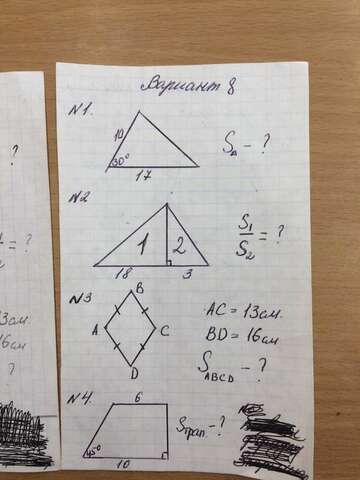 Вариант 8
№1.
10
30°
17
S△ - ?
№2
1 2
18 3
S₁/S₂ = ?
№3
B
A C
D
AC = 13см.
BD = 16см
S ABCD - ?
№4.
6
45°
10
Sтрап. - ?
?
= ?
2
13см.
16см
?